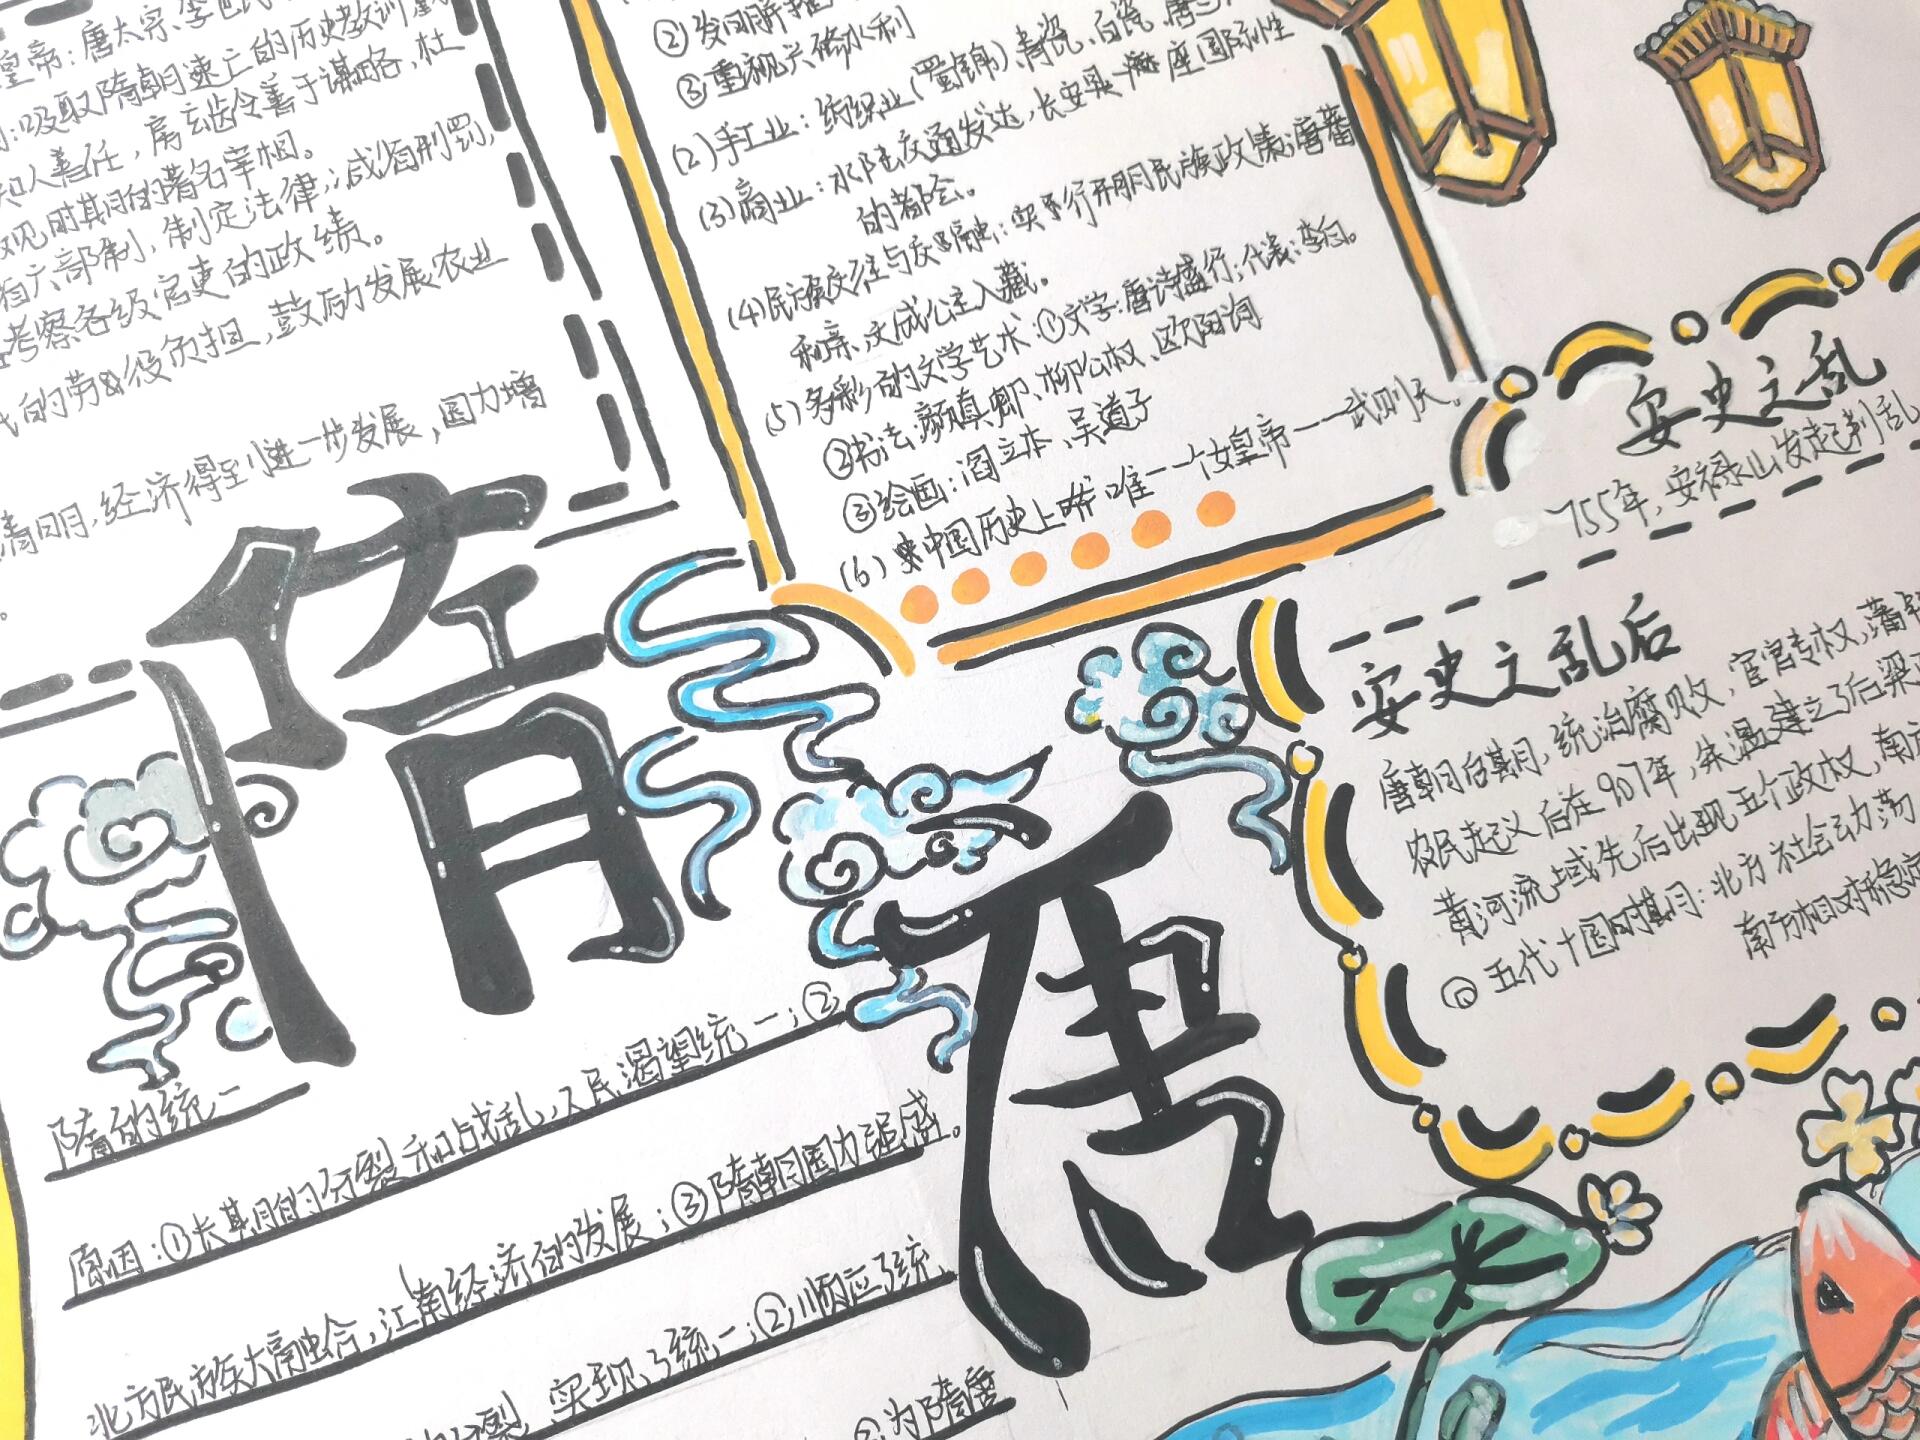 皇帝：唐太宗、李
吸取隋朝速亡的历史教训
知人善任，房玄龄令善于谋略，杜
时期的著名宰相。
省六部制，制定法律，减省刑罚，
考察各级官吏的政绩。
的劳役负担，鼓励发展农业
清明，经济得到进一步发展，国力增
②发明
③重视兴修水利
(2)手工业：纺织业(蜀锦)、青瓷、白瓷、唐三
(3)商业：水陆交通发达，长安是一座国际性
的都会。
(4)民族交往与交融：实行开明民族政策；唐蕃
和亲、文成公主入藏。
(5)多彩的文学艺术：①文学：唐诗盛行；代表：李白。
②书法：颜真卿、柳公权、欧阳询
③绘画：阎立本、吴道子
(6)中国历史上唯一一个女皇帝——武则天。
安史之乱
755年，安禄山发起判乱
安史之乱后
唐朝后期，统治腐败，宦官专权，藩
农民起义后在907年，朱温建立了后梁
黄河流域先后出现五个政权，南方
五代十国时期：北方社会动荡
南方相对稳定
隋
唐
隋的统一
原因：①长期的分裂和战乱，人民渴望统一；②
北方民族大融合，江南经济的发展；③隋朝国力强盛。
分裂，实现了统一；②顺应了统
为隋唐